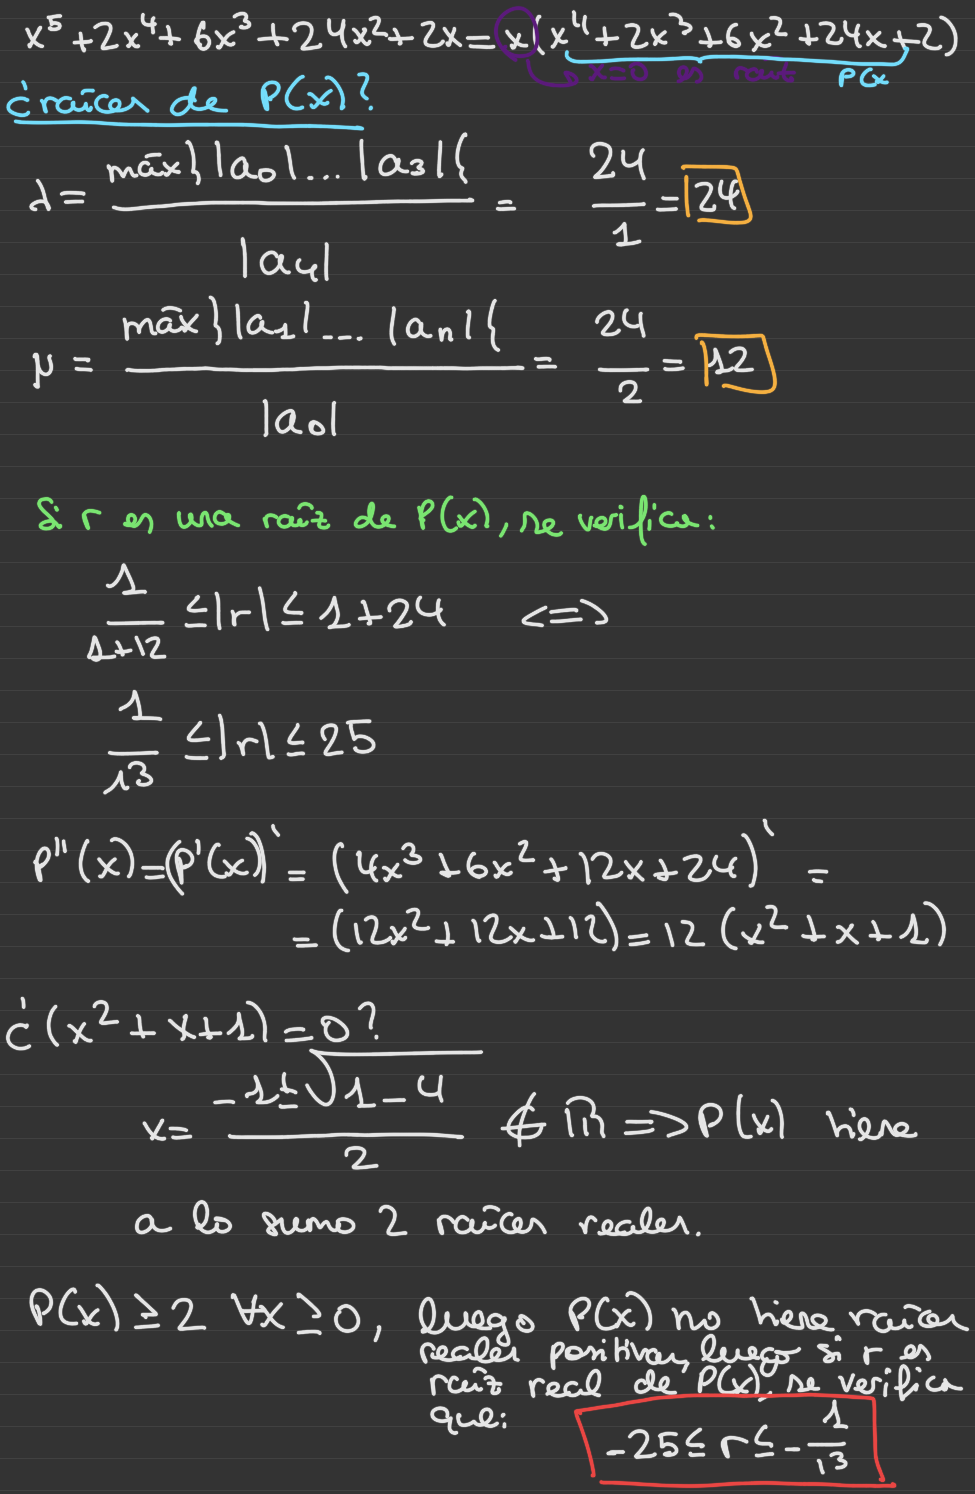 x⁵+2x⁴+6x³+24x²+2x=x(x⁴+2x³+6x²+24x+2)
x=0 es raíz P(x
¿raíces de P(x)?
λ = máx}|a₀|...|a₃|{ / |a₄| = 24/1 = 24
μ = máx}|a₁|...|aₙ|{ / |a₀| = 24/2 = 12
Si r es una raíz de P(x), se verifica:
1/(1+12) ≤|r|≤ 1+24 <=>
1/13 ≤|r|≤ 25
P''(x)=(P'(x))' = (4x³+6x²+12x+24)' =
= (12x²+12x+12)=12(x²+x+1)
¿(x²+x+1)=0?
x= (-1±√(1-4))/2 ∉ ℝ => P(x) tiene
a lo sumo 2 raíces reales.
P(x)≥2 ∀x≥0, luego P(x) no tiene raíces
reales positivas, luego si r es
raíz real de P(x), se verifica
que:
-25≤r≤-1/13